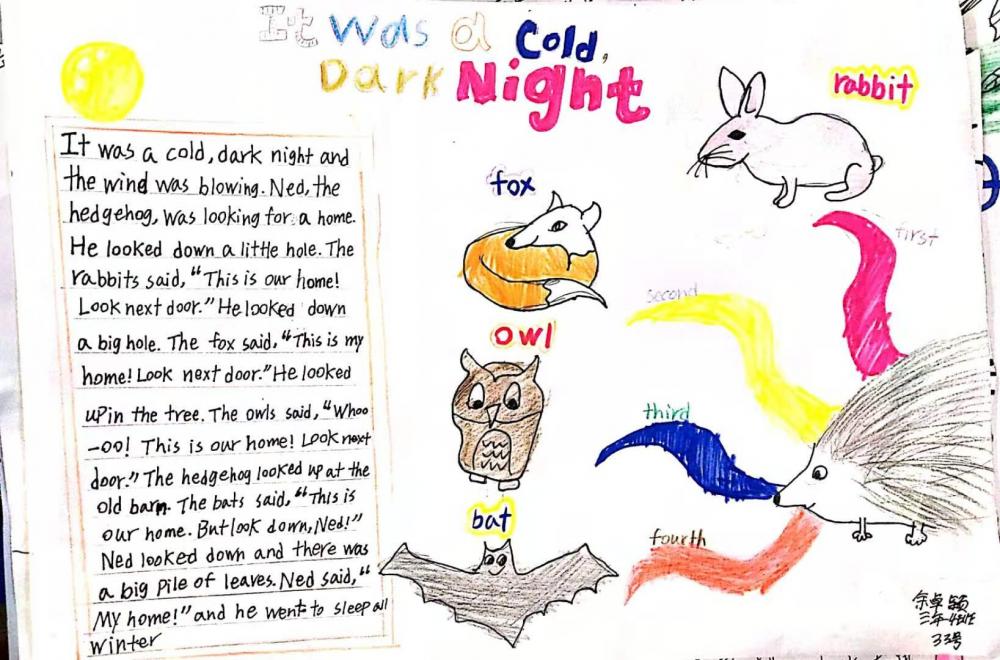 It was a Cold,
Dark Night
rabbit
It was a cold, dark night and
the wind was blowing. Ned, the
hedgehog, was looking for a home.
He looked down a little hole. The
rabbits said, “This is our home!
Look next door.” He looked down
a big hole. The fox said, “This is my
home! Look next door.” He looked
up in the tree. The owls said, “Whoo
-oo! This is our home! Look next
door.” The hedgehog looked up at the
old barn. The bats said, “This is
our home. But look down, Ned!”
Ned looked down and there was
a big pile of leaves. Ned said, “
My home!” and he went to sleep all
winter
fox
owl
bat
first
second
third
fourth
余卓颖
三年4班
33号